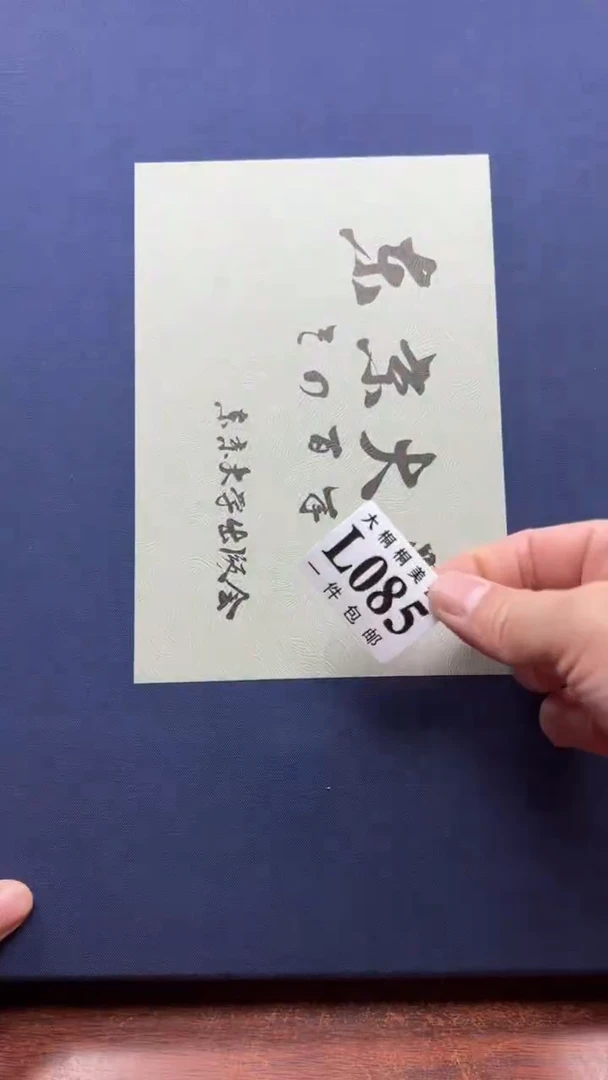 東京大
その百年
東京大学出版会
大桐桐美
L085
一件包邮